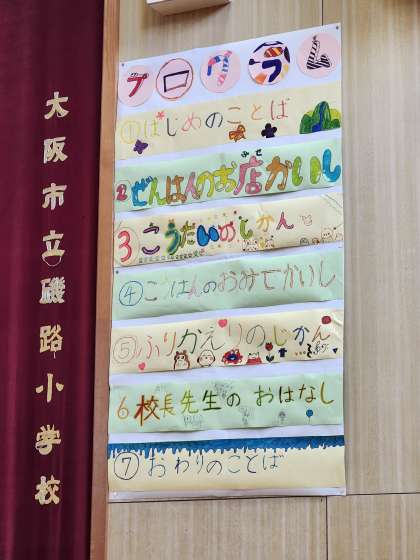 大阪市立磯路小学校
プログラム
①はじめのことば
2ぜんはんのお店かいし
みせ
3こうたいのじかん
④こうはんのおみせかいし
⑤ふりかえりのじかん
6校長先生のおはなし
⑦おわりのことば